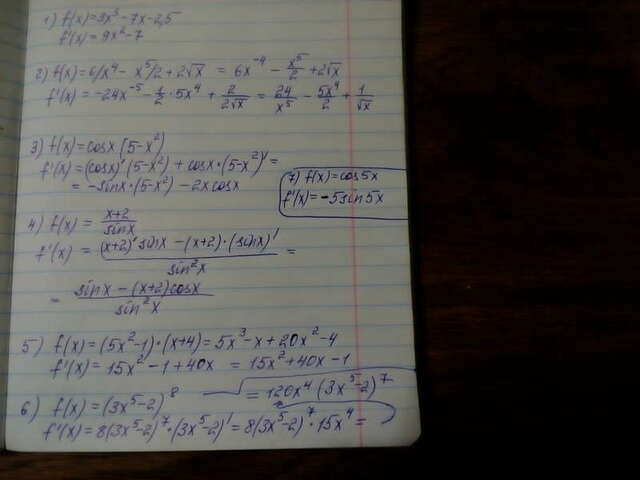 1) f(x)=3x³-7x-2,5
f'(x)=9x²-7
2) f(x)=6/x⁴- x⁵/2+2√x = 6x⁻⁴ - x⁵/2 +2√x
f'(x)= -24x⁻⁵ - 1/2 · 5x⁴ + 2/2√x = 24/x⁵ - 5x⁴/2 + 1/√x
3) f(x)=cosx (5-x²)
f'(x)=(cosx)'(5-x²) + cosx·(5-x²)'=
= -sinx·(5-x²) - 2x cosx
7) f(x)=cos5x
f'(x)= -5sin5x
4) f(x) = x+2/sinx
f'(x) = (x+2)' sinx - (x+2)·(sinx)'/sin²x =
= sinx - (x+2)cosx/sin²x
5) f(x)=(5x²-1)·(x+4)=5x³-x+20x²-4
f'(x)=15x²-1+40x = 15x²+40x-1
6) f(x)=(3x⁵-2)⁸
= 120x⁴(3x⁵-2)⁷
f'(x)=8(3x⁵-2)⁷·(3x⁵-2)'=8(3x⁵-2)⁷·15x⁴=